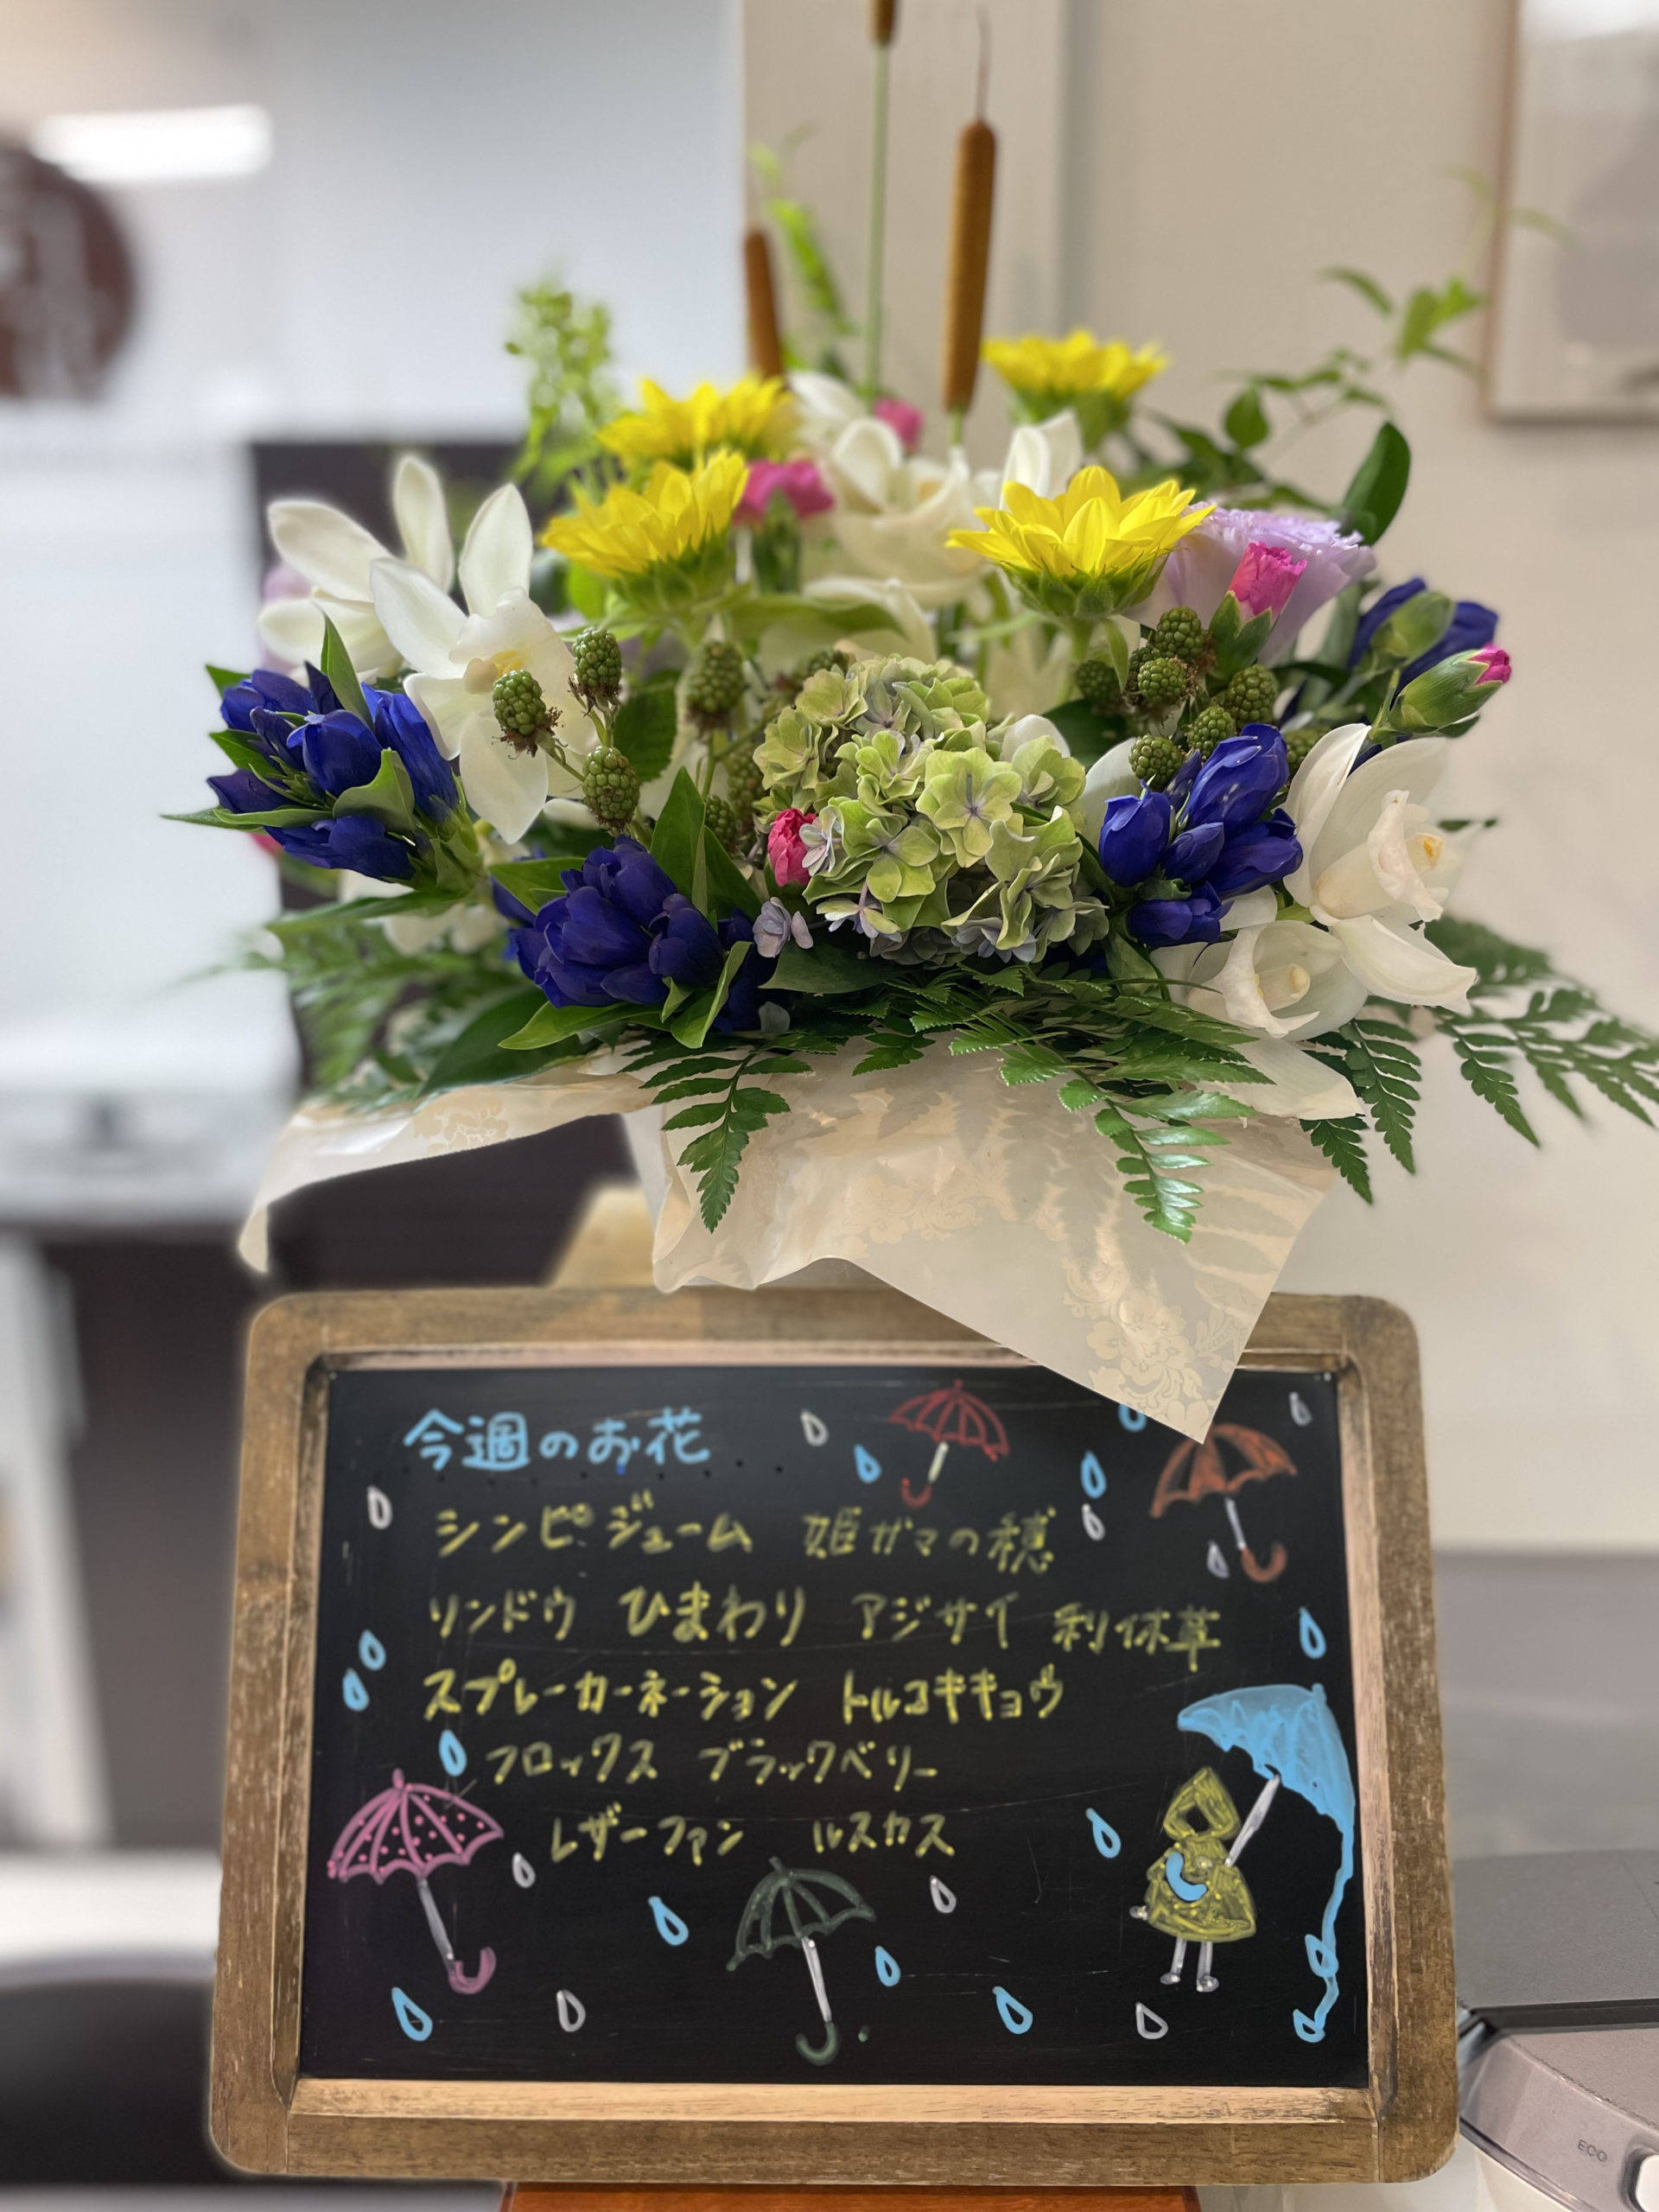 今週のお花
シンビジューム 姫ガマの穂
リンドウ ひまわり アジサイ 利休草
スプレーカーネーション トルコキキョウ
フロックス ブラックベリー
レザーファン ルスカス
ECO